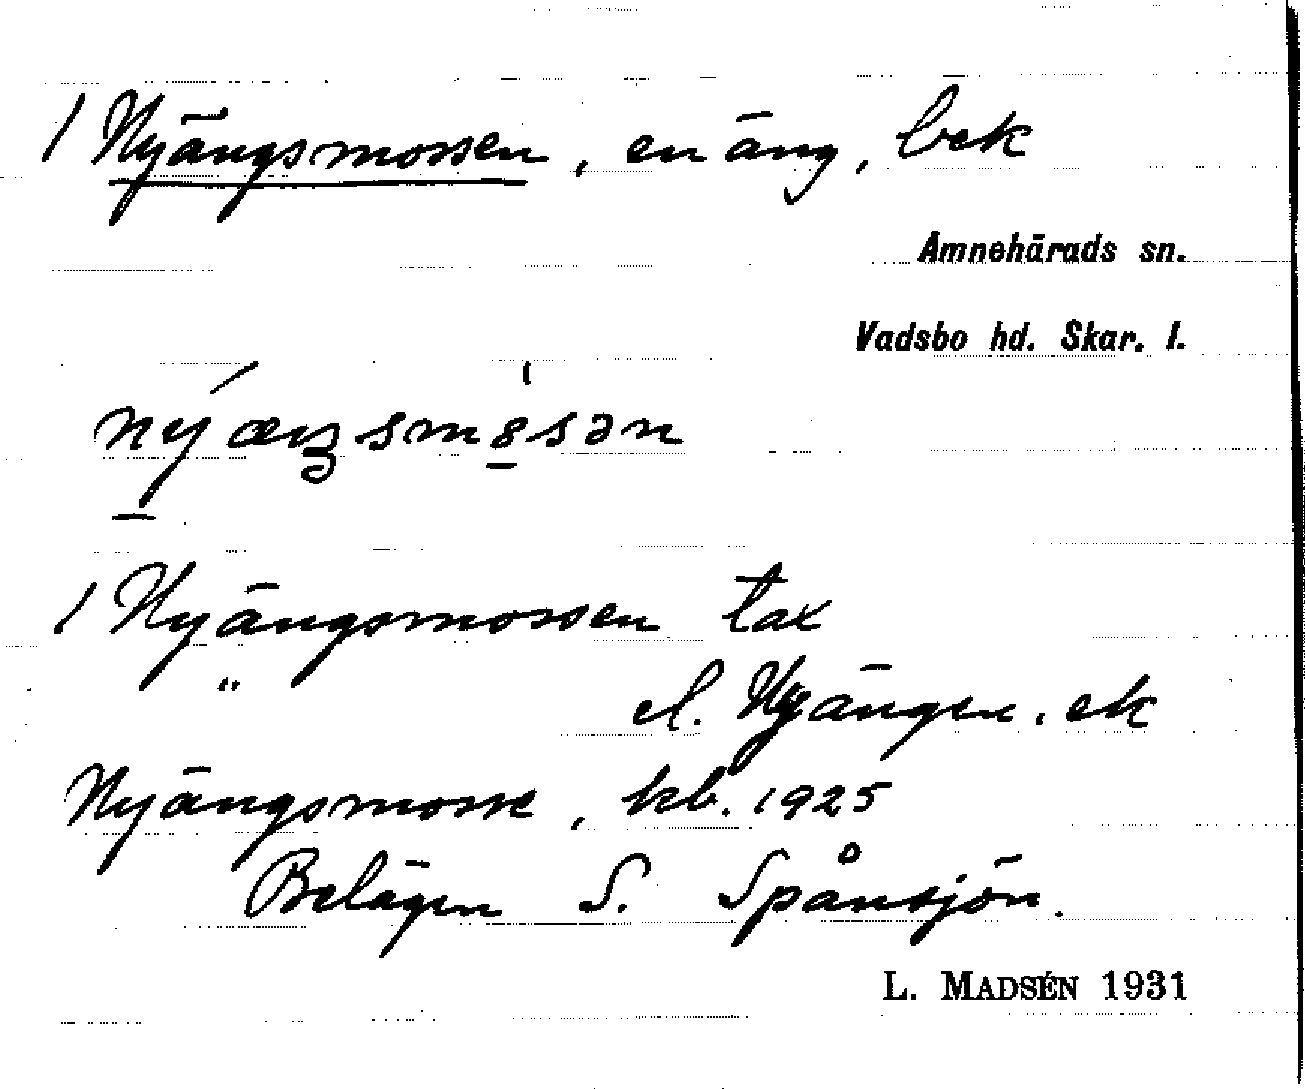 / Nyängsmossen, en äng, bek
Amnehärads sn.
Vadsbo hd. Skar. l.
nýæŋsmósən
/ Nyängsmossen tax
" el. Nyängen, ek
Nyängsmosse, kb. 1925
Belägen S. Spånsjön.
L. MADSÉN 1931